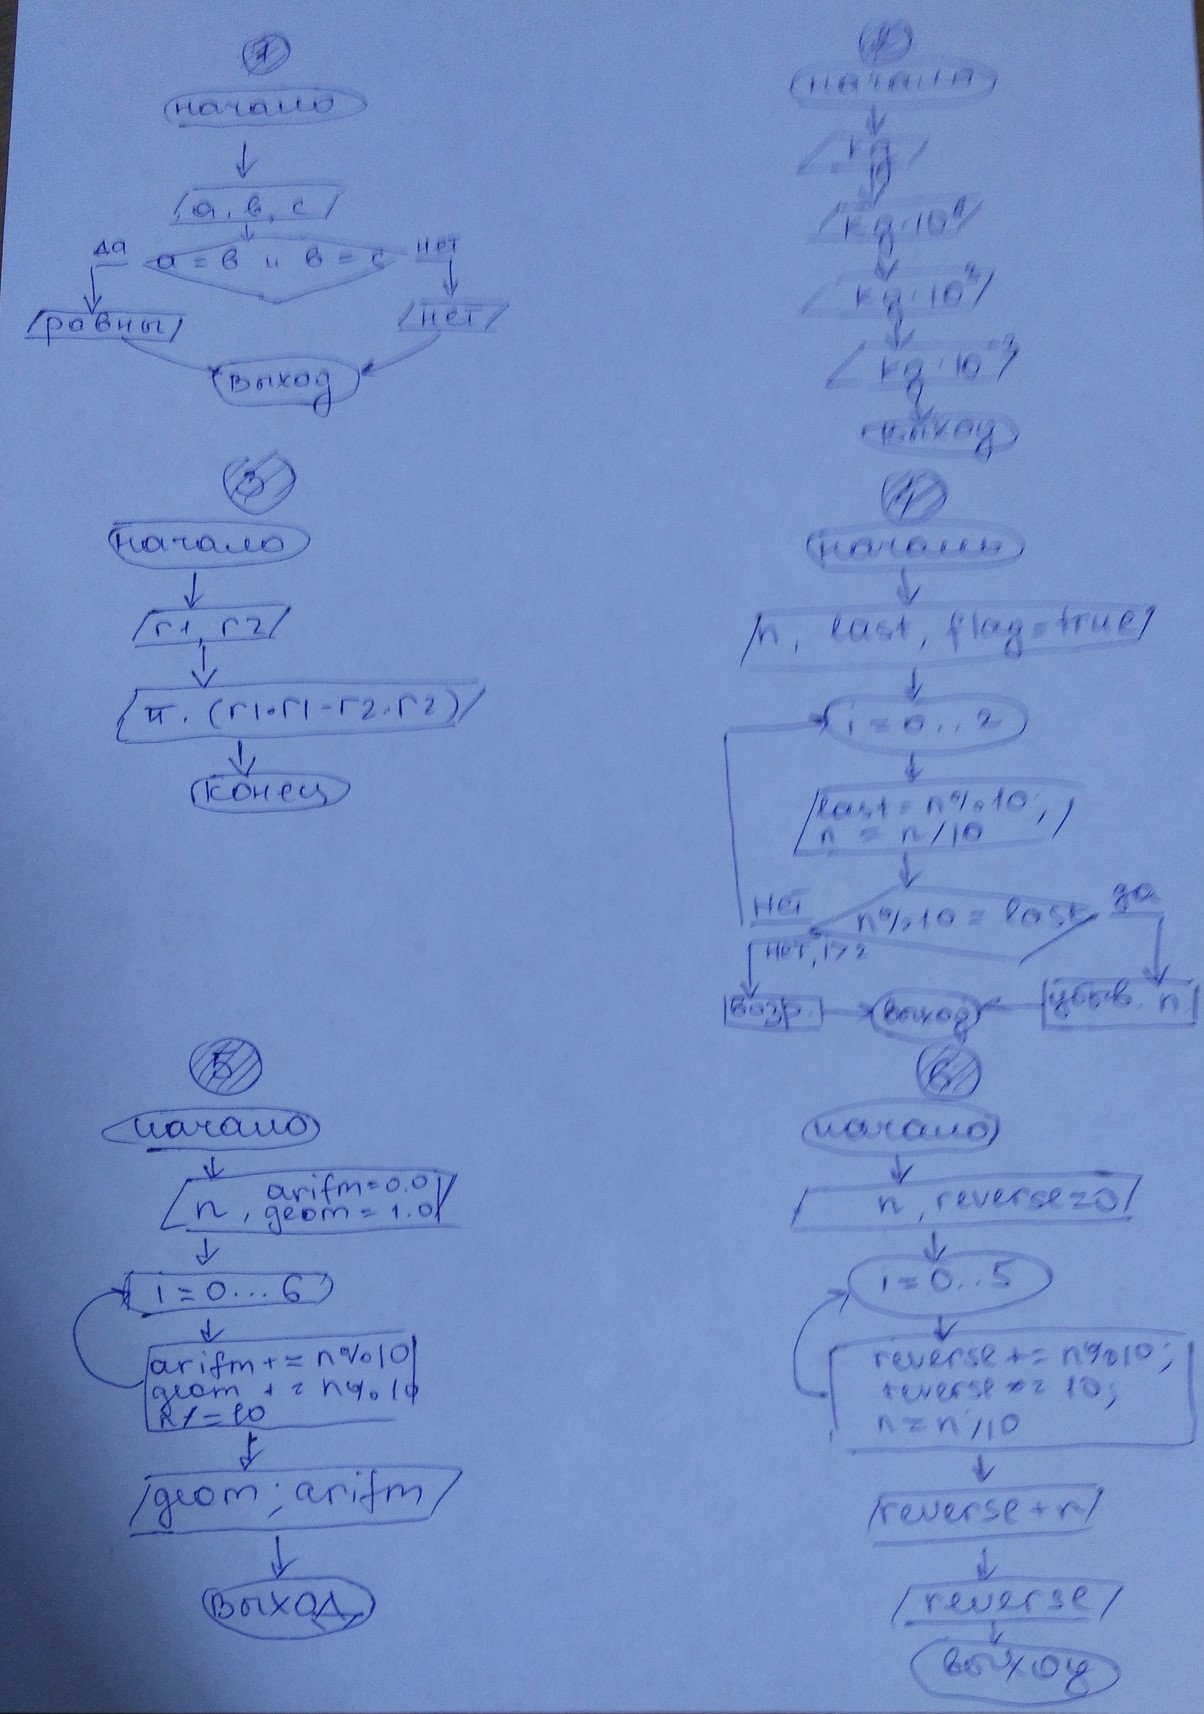 1
начало
a, в, c
да
a = в и в = c
нет
равны
нет
выход
2
начало
kg
kg·10
kg·10
kg·10
выход
3
начало
r1, r2
π · (r1·r1-r2·r2)
конец
4
начало
n, last, flag=true
i = 0..2
last = n%10;
n = n/10
нет
n%10 = last
да
нет, i>2
возр.
выход
убыв. n
5
начало
n, arifm=0.0
geom=1.0
i = 0...6
arifm += n%10
geom += n%10
n/=10
geom; arifm
выход
6
начало
n, reverse=0
i=0..5
reverse += n%10;
reverse *= 10;
n = n/10
reverse+n
reverse
выход